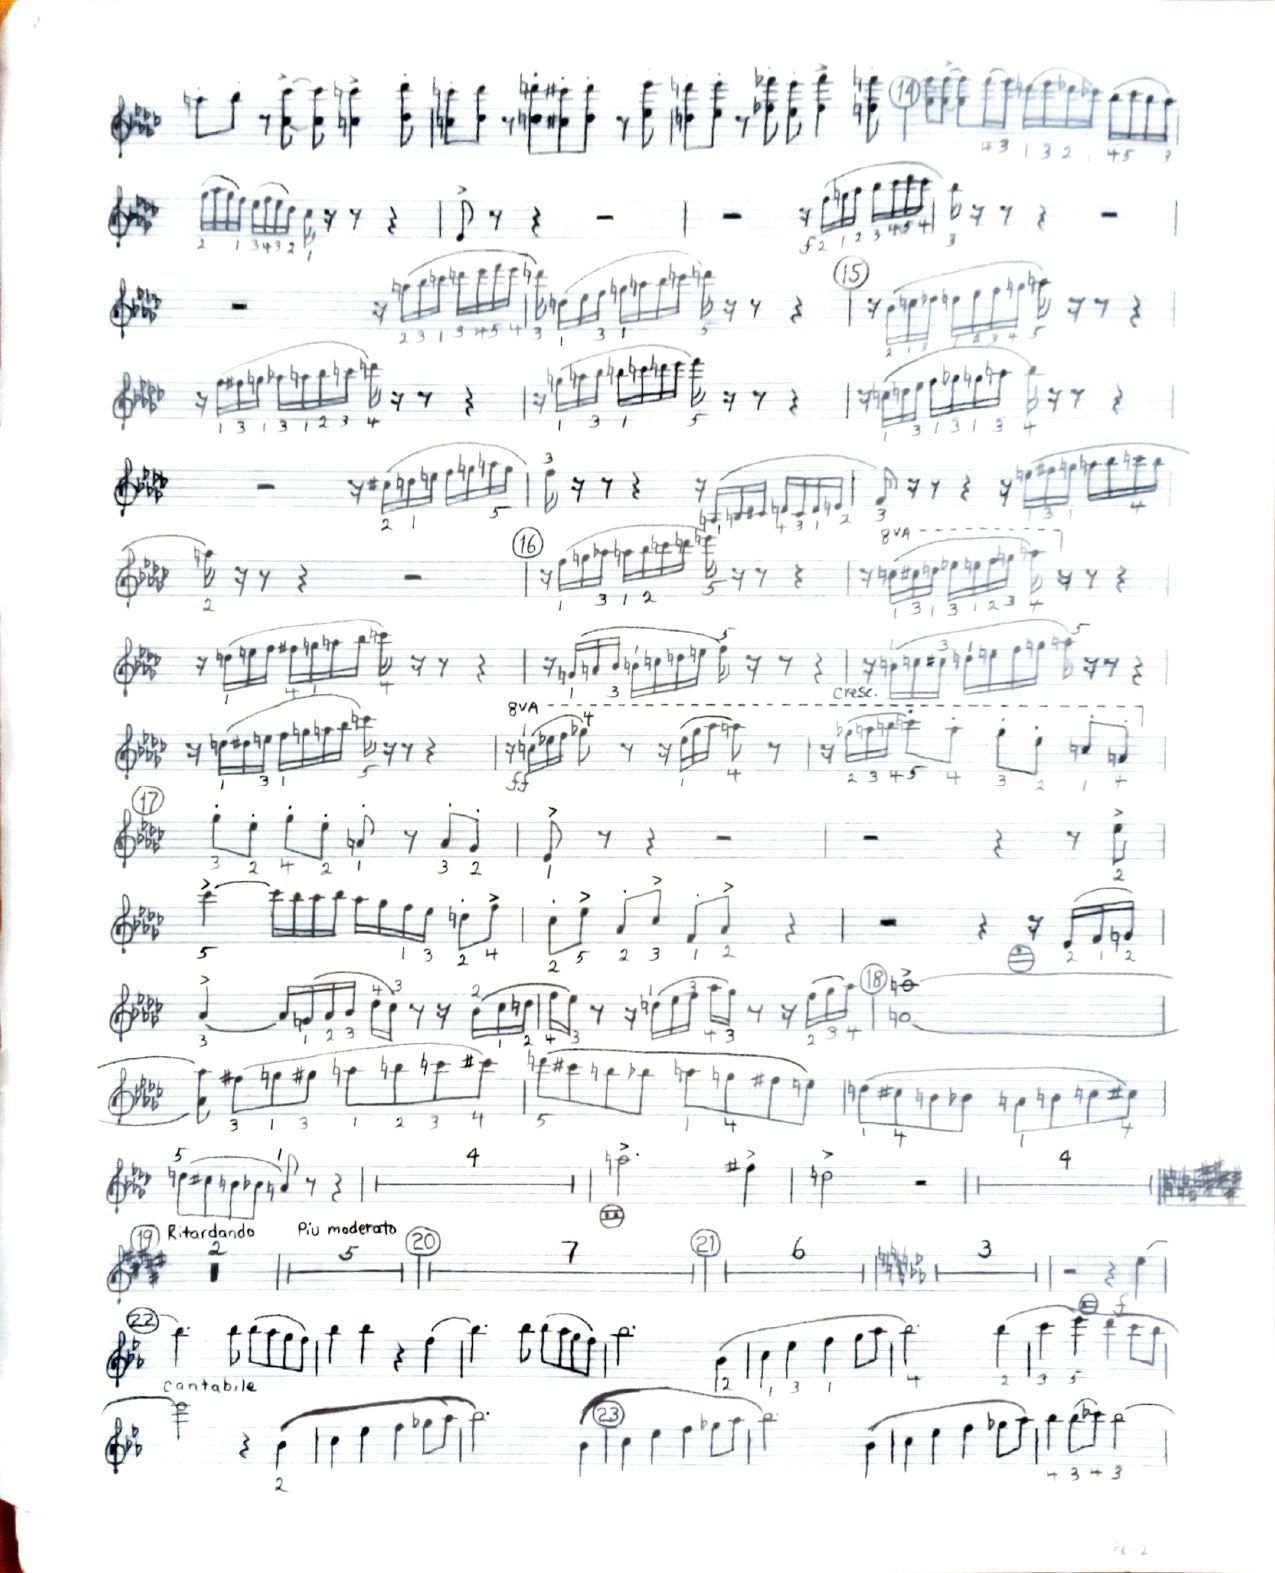 14
4 3 1 3 2 1 4 5 3
2 1 3 4 3 2 1
f 2 1 2 3 4 5 4 3
15
2 3 1 3 4 5 4 3 1 3 1 5 2 1 3 1 2 3 4 5
1 3 1 3 1 2 3 4 1 3 1 5 1 3 1 3 1 3 4
3
2 1 5 1 4 3 1 2 3 1 3 1 4
16
8VA
2 1 3 1 2 5 1 3 1 3 1 2 3 4
5 1 3 1 5
1 4 1 4 1 3
cresc.
8VA
1 4
1 3 1 5 ff 1 4 2 3 4 5 4 3 2 1 4
17
3 2 4 2 1 3 2 1 2
5 1 3 2 4 2 5 2 3 1 2 2 1 2
18
4 3 2 1 3
3 1 2 3 1 2 4 3 4 3 2 3 4
3 1 3 1 2 3 4 5 1 4 1 4 1 4
5 1 4 4
19 Ritardando Piu moderato 20 21
2 5 7 6 3
f
22
2 1 3 1 4 2 3 5
cantabile
23
2 4 3 4 3
FL 2